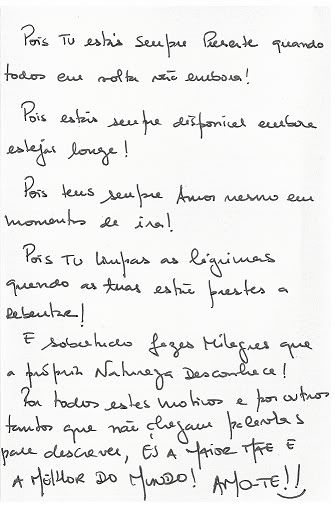 Pois Tu estás sempre Presente quando
todos em volta vão embora!
Pois estás sempre disponível embora
estejas longe!
Pois tens sempre Amor mesmo em
momentos de ira!
Pois Tu limpas as lágrimas
quando as tuas estão prestes a
rebentar!
E sobretudo fazes Milagres que
a própria Natureza Desconhece!
Por todos estes motivos e por outros
tantos que não chegam palavras
para descrever, ÉS A MAIOR MÃE E
A MELHOR DO MUNDO! AMO-TE!!